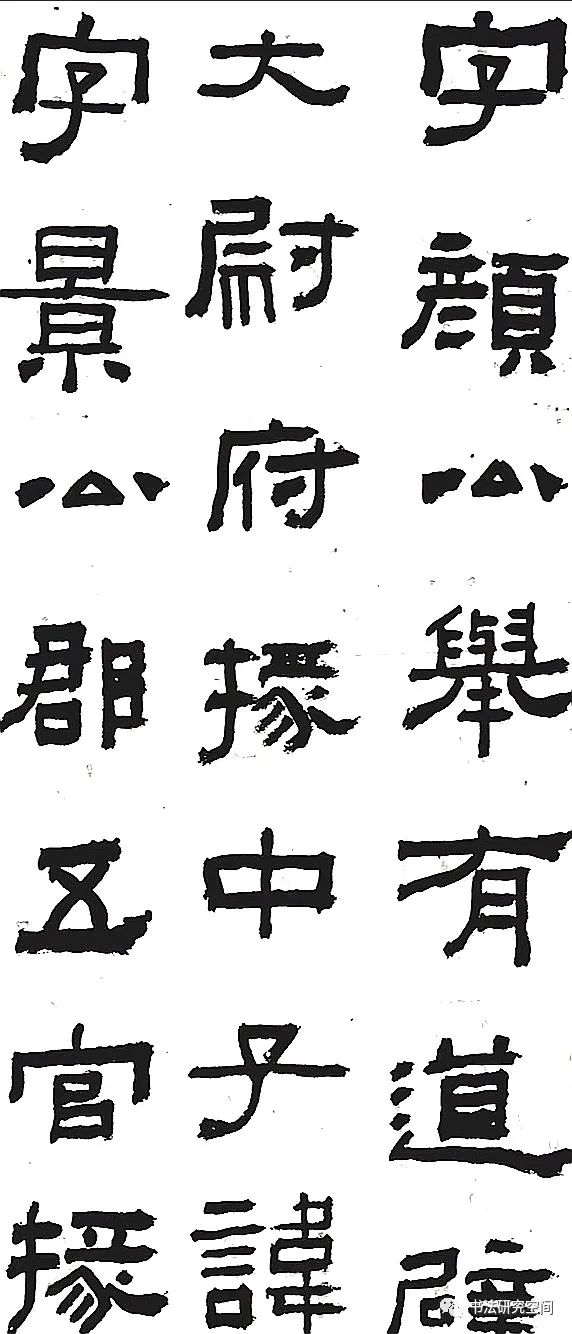 字顔公舉有道辟
大尉府掾中子諱
字景公郡五官掾
书法研究空间